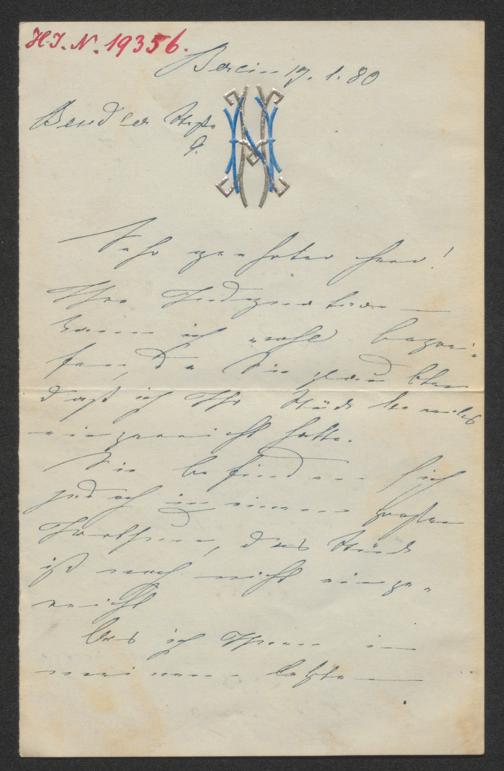 H.I.N. 19356.
Berlin 17. 1. 80
Bendler Str.
9.
Sehr geehrter Herr!
Ihre Indignation
kann ich wohl begrei-
fen, da Sie glaubten
daß ich Ihr Stück bereits
eingereicht hatte.
Sie befinden sich
jedoch in einem großen
Irrthum, das Stück
ist noch nicht einge-
reicht.
Als ich Ihnen in
meinem letzten